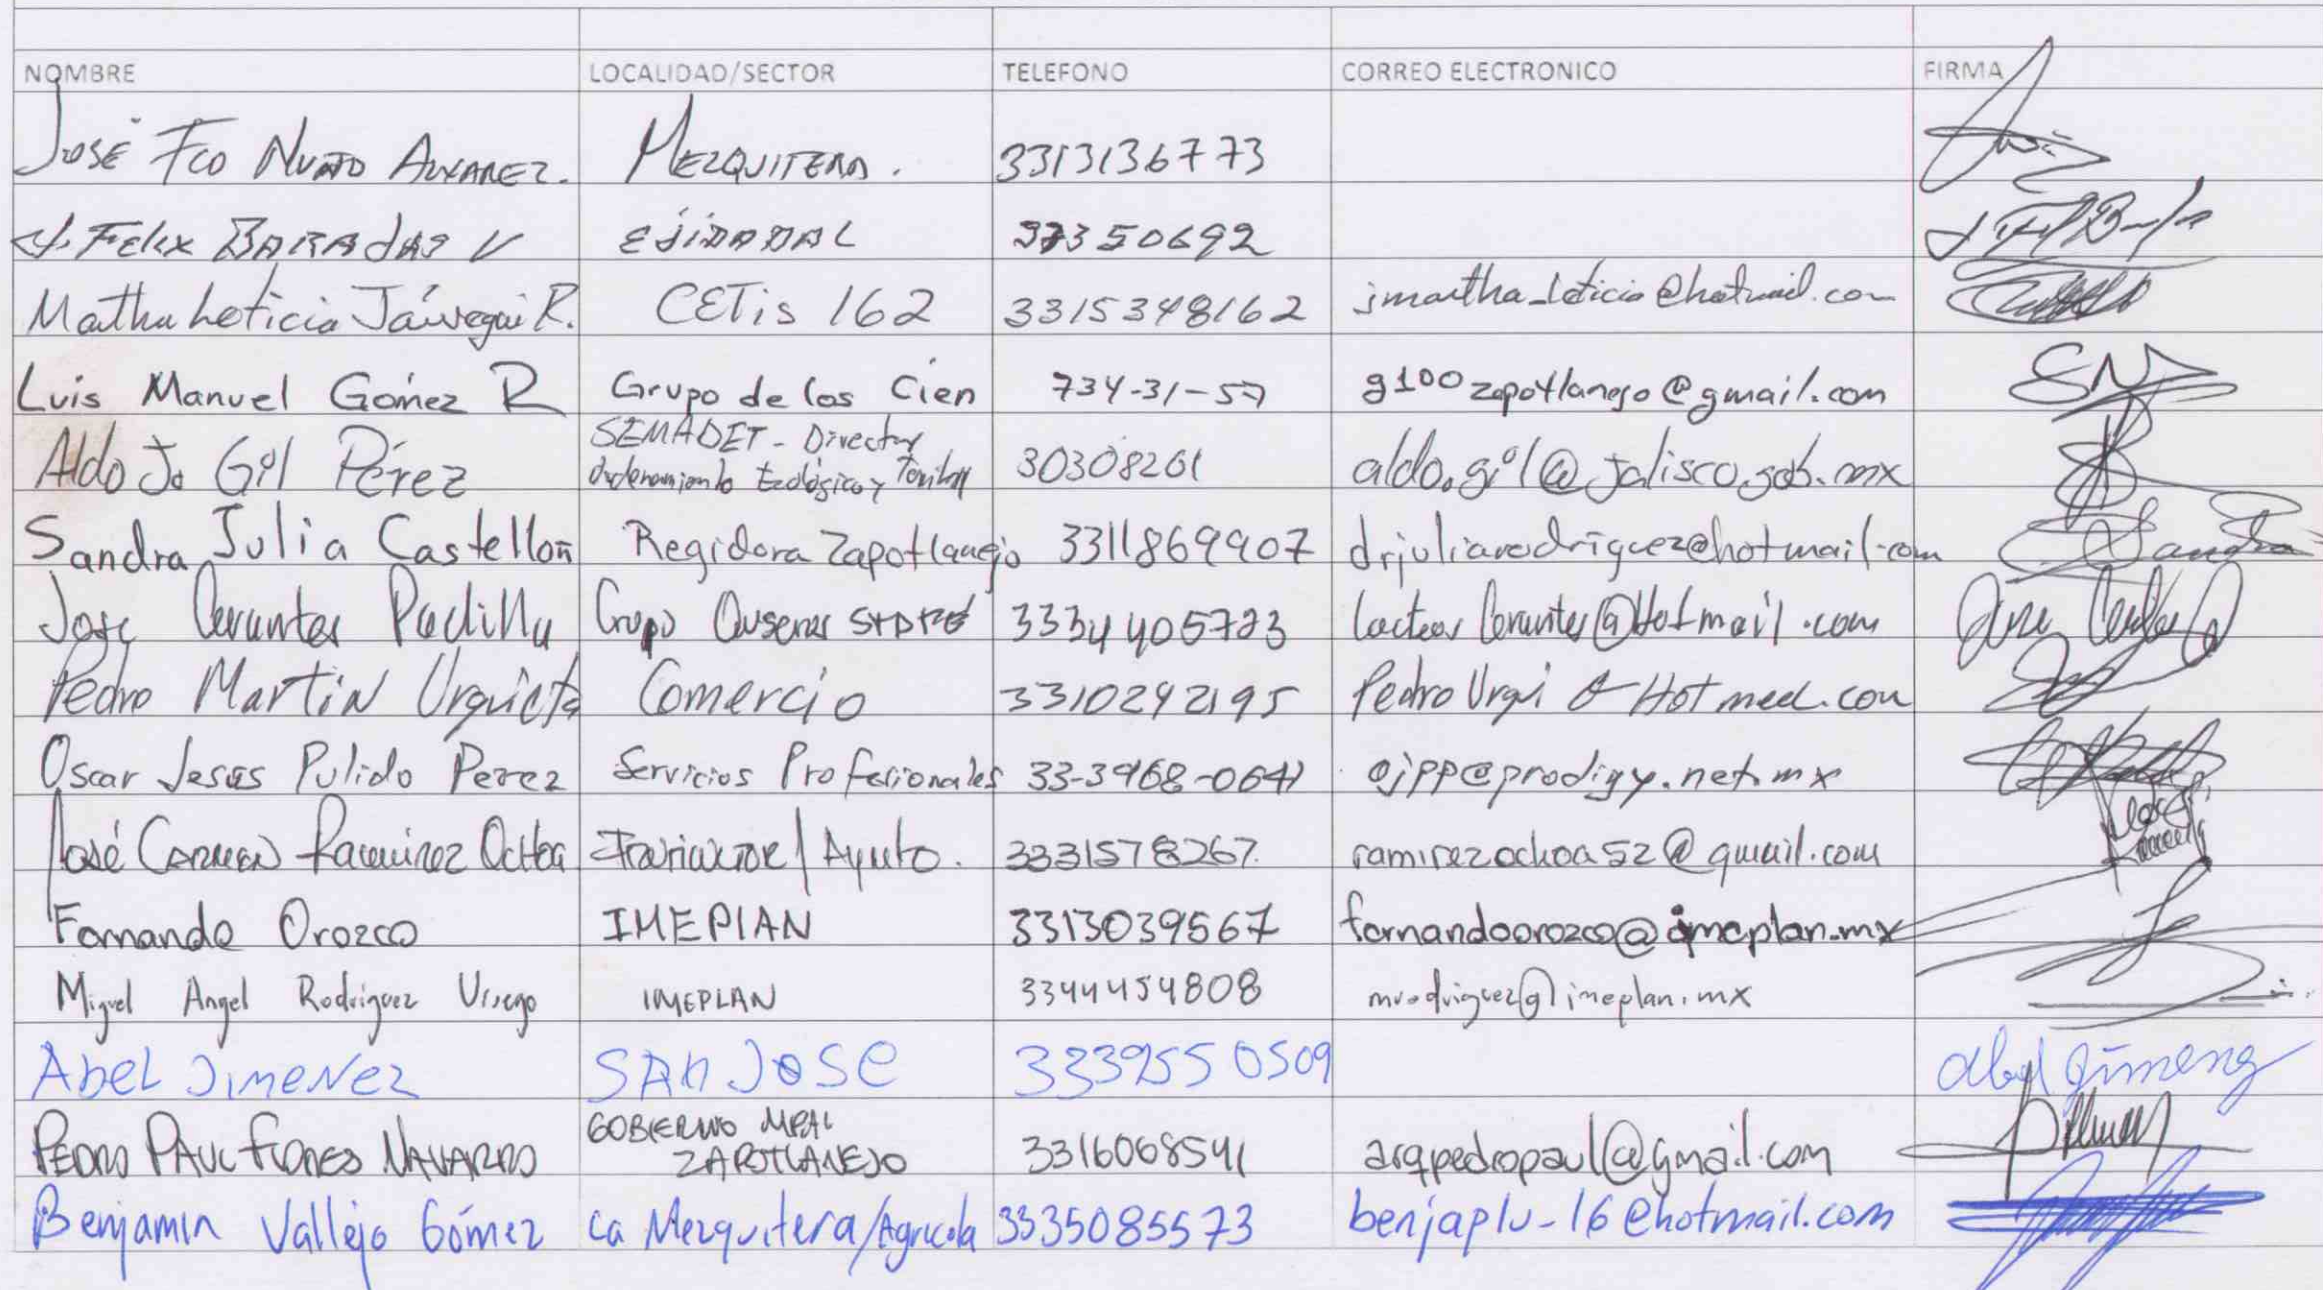 NOMBRE LOCALIDAD/SECTOR TELEFONO CORREO ELECTRONICO FIRMA
José Fco Nuño Alvarez. Mezquitera. 3313136773
J. Felix BARAdAS V EJIDADAL 37350692
Martha Leticia Jáuregui R. CETis 162 3315348162 jmartha_leticia@hotmail.com
Luis Manuel Gómez R Grupo de los Cien 734-31-57 g100zapotlanejo@gmail.com
SEMADET - Director
Aldo J. Gil Pérez Ordenamiento Ecológico y Territorial 30308261 aldo.gil@jalisco.gob.mx
Sandra Julia Castellon Regidora Zapotlanejo 3311869907 drjuliarodriguez@hotmail.com Sandra
Jose Cervantes Padilla Grupo 3334405723 lacteos Cervantes@Hotmail.com
Pedro Martin Urquieta Comercio 3310242195 Pedro Urqui @ Hot
Oscar Jesús Pulido Perez Servicios Profesionales 33-3968-0641 ojpp@prodigy.net.mx
José Carmen Ramirez Ochoa / Ayunto. 3331578267. ramirezochoa52@gmail.com
Fernando Orozco IMEPLAN 3313039567 fernandoorozco@imeplan.mx
Miguel Angel Rodriguez IMEPLAN 3344454808 mrodriguez@imeplan.mx
Abel Jimenez San Jose 3339550509 Abel Jimenez
GOBIERNO MPAL
PEDRO PAUL FLORES NAVARRO ZAPOTLANEJO 3316068541 arqpedropaul@gmail.com
Benjamin Vallejo Gómez La Mezquitera/Agricola 3335085573 benjaplu-16@hotmail.com